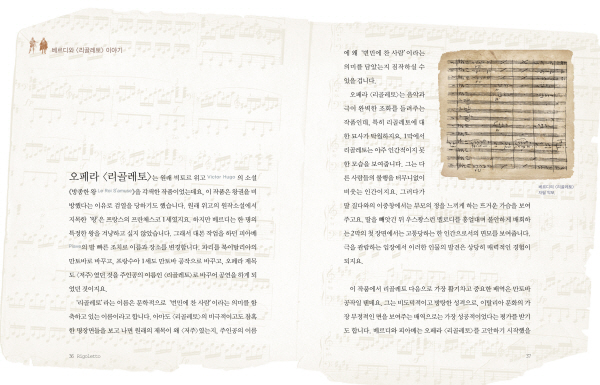 베르디와 〈리골레토〉 이야기
오페라 〈리골레토〉는 원래 빅토르 위고 Victor Hugo 의 소설
《방종한 왕 Le Roi s'amuse》을 각색한 작품이었는데요, 이 작품은 왕권을 비
방했다는 이유로 검열을 당하기도 했습니다. 원래 위고의 원작소설에서
지목한 '왕'은 프랑스의 프란체스코 1세였지요. 하지만 베르디는 한 명의
특정한 왕을 겨냥하고 싶지 않았습니다. 그래서 대본 작업을 하던 피아베
Piave의 발 빠른 조치로 이름과 장소를 변경합니다. 파리를 북이탈리아의
만토바로 바꾸고, 프랑수아 1세도 만토바 공작으로 바꾸고, 오페라 제목
도 〈저주〉였던 것을 주인공의 이름인 〈리골레토〉로 바꾸어 공연을 하게 되
었던 것이지요.
'리골레토'라는 이름은 문학적으로 '번민에 찬 사람'이라는 의미를 함
축하고 있는 이름이라고 합니다. 아마도 〈리골레토〉의 비극적이고도 참혹
한 명장면들을 보고 나면 원래의 제목이 왜 〈저주〉였는지, 주인공의 이름
36 Rigoletto
에 왜 '번민에 찬 사람'이라는
의미를 담았는지 짐작하실 수
있을 겁니다.
오페라 〈리골레토〉는 음악과
극이 완벽한 조화를 들려주는
작품인데, 특히 리골레토에 대
한 묘사가 탁월하지요. 1막에서
리골레토는 아주 인간적이지 못
한 모습을 보여줍니다. 그는 다
른 사람들의 불행을 비꼬고
비웃는 인간이지요. 그러다가
딸 질다와의 이중창에서는 부모의 정을 느끼게 하는 뜨거운 가슴을 보여
주고요. 딸을 빼앗긴 뒤 우스꽝스런 멜로디를 흥얼대며 불안하게 배회하
는 2막의 첫 장면에서는 고통당하는 한 인간으로서의 면모를 보여줍니다.
극을 관람하는 입장에서 이러한 인물의 발견은 상당히 매력적인 경험이
되지요.
이 작품에서 리골레토 다음으로 가장 활기차고 중요한 배역은 만토바
공작일 텐데요, 그는 비도덕적이고 방탕한 성격으로, 이탈리아 문화의 가
장 부정적인 면을 보여주는 배역으로는 가장 성공적이었다는 평가를 받기
도 합니다. 베르디와 피아베는 오페라 〈리골레토〉를 고안하기 시작했을
베르디의 〈리골레토〉
37